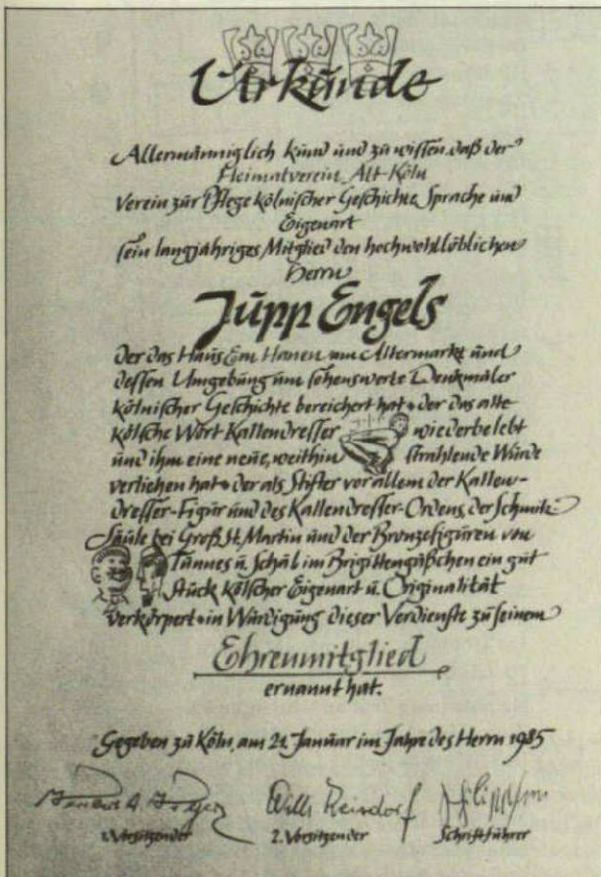 Urkunde
Allermänniglich kund und zu wissen, daß der
Heimatverein Alt-Köln
Verein zur Pflege kölnischer Geschichte, Sprache und
Eigenart
sein langjähriges Mitglied den hochwohllöblichen
Herrn
Jupp Engels
der das Haus Em Hanen am Altermarkt und
dessen Umgebung um sehenswerte Denkmäler
kölnischer Geschichte bereichert hat • der das alte
kölsche Wort Kallendresser wiederbelebt
und ihm eine neue, weithin strahlende Würde
verliehen hat • der als Stifter vor allem der Kallen-
dresser-Figur und des Kallendresser-Ordens, der Schmitz-
Säule bei Groß St. Martin und der Bronzefiguren von
Tünnes u. Schäl im Brigittengäßchen ein gut
Stück kölscher Eigenart u. Originalität
verkörpert • in Würdigung dieser Verdienste zu seinem
Ehrenmitglied
ernannt hat.
Gegeben zu Köln, am 21. Januar im Jahre des Herrn 1985
Willi Reisdorf
1. Vorsitzender 2. Vorsitzender Schriftführer